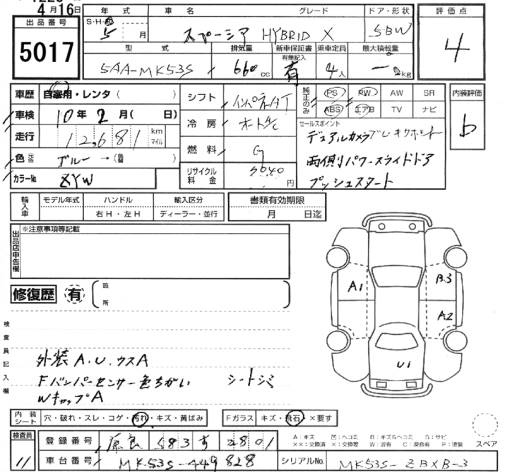 4月16日
出品番号
5017
年式 車名 グレード ドア・形状
S・H・R 5年 月 スペーシア HYBRID X 5BW
型式 排気量 新車保証書 乗車定員 最大積載量
有無記入
5AA-MK53S 660cc 有 4人 kg
評価点
4
車歴 自家用・レンタ( )
車検 10年2月( 日)
走行 12,681 km マイル
色 ブルー→(
カラーNo ZYW
シフト インパネAT
冷房 オートAC
燃料 G
リサイクル料金 5040
純正のみ
PS PW AW SR
ABS エアB TV ナビ
セールスポイント
デュアルカメラブレーキサポート
両側パワースライドドア
プッシュスタート
内装評価
b
輸入車 モデル年式 ハンドル 輸入区分
年 右H・左H ディーラー・並行
書類有効期限
月 日迄
出品店申告欄
※注意事項等記載
修復歴 有 箇所
検査員記入欄
外装A.U.ウスA
Fバンパーセンサー色ちがい シートシミ
WキャップA
A1
B3
A2
U1
内装シート 穴・破れ・スレ・コゲ・汚れ・キズ・黄ばみ
Fガラス キズ・飛石・×要す
スペア
検査員
11
登録番号 583す 2801
車台番号 MK53S-449828
シリアルNo. MK53S-ZBXB-3